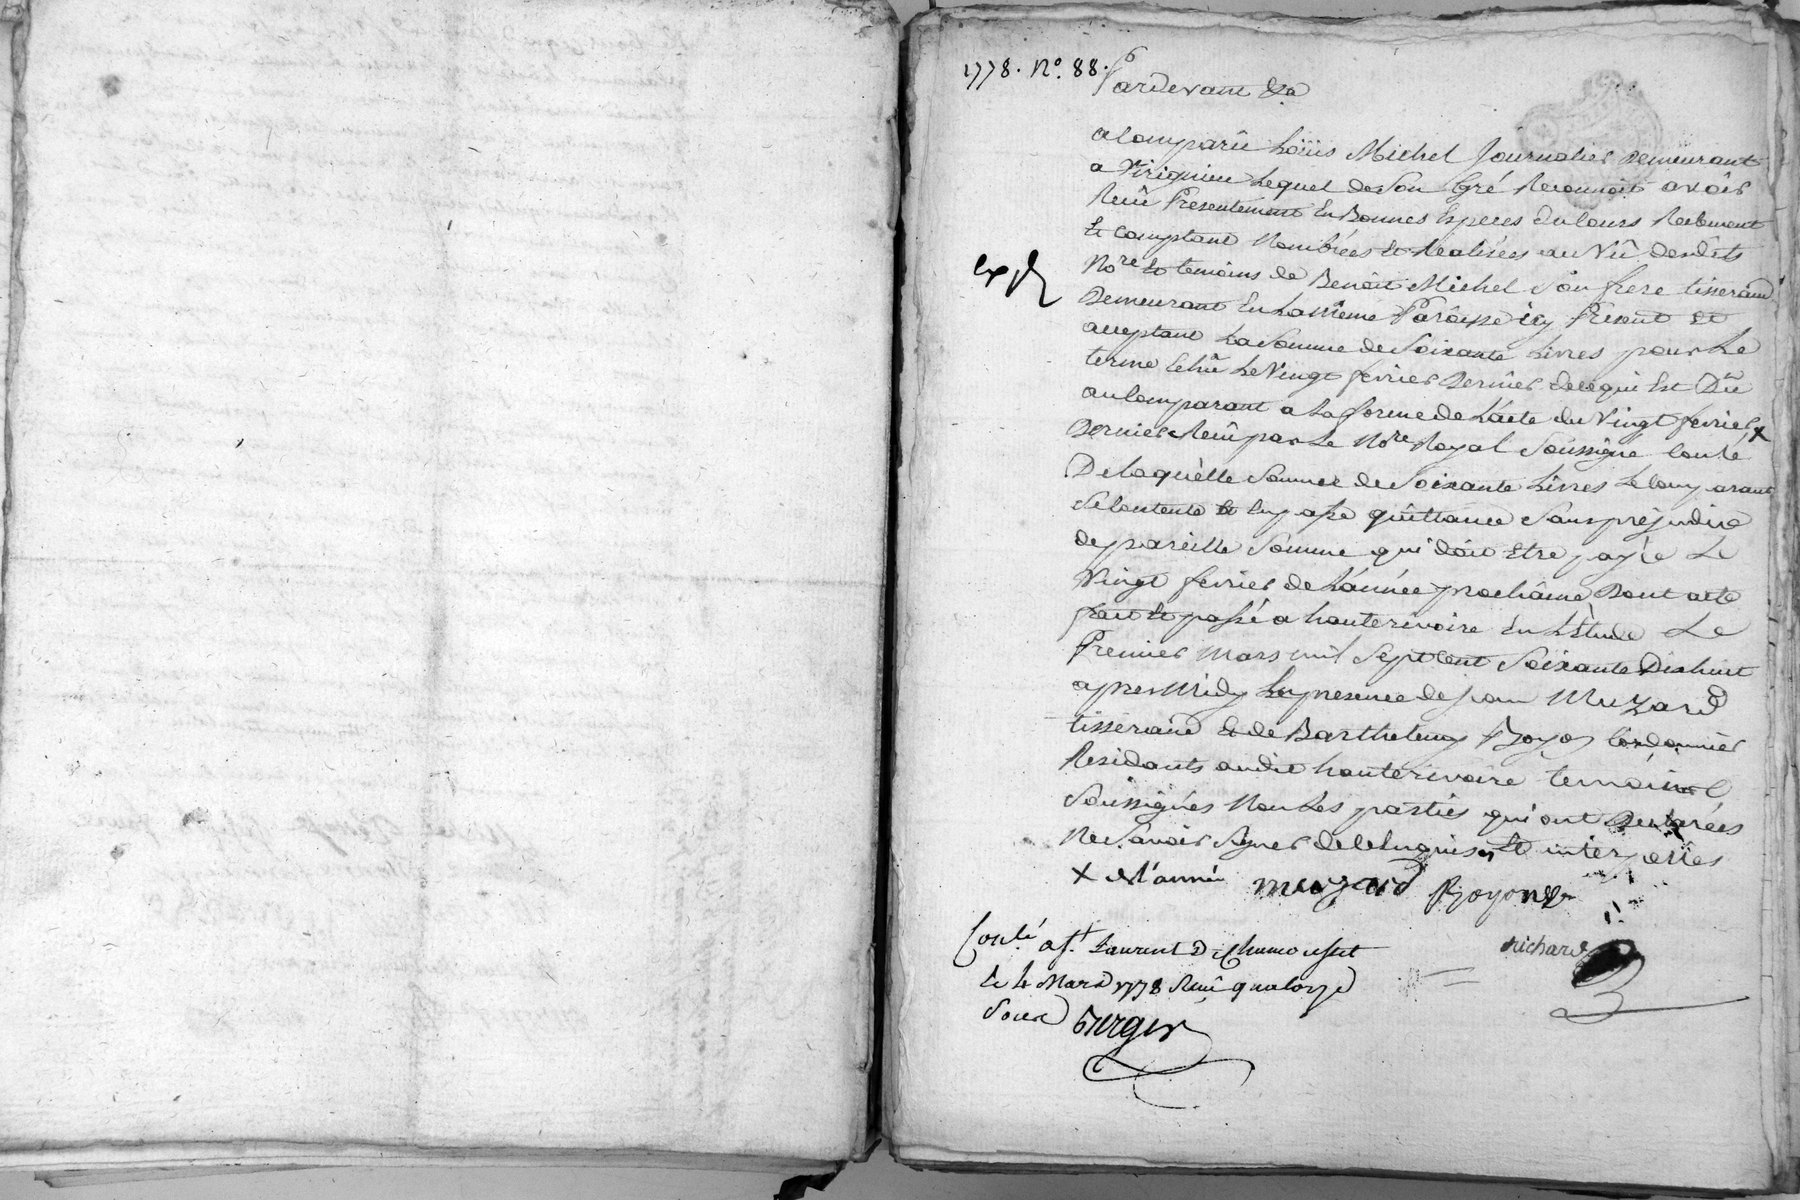 1778. No. 88.
Pardevant &a
a Comparû Loüis Michel Journalier Demeurant
a Virignieu Lequel de Son Gré Reconnoit avoir
Reçû Presentement En Bonnes Especes du Cours Reelement
Et Comptant Nombrées Et Realisées au Vû desdits
Nore Et temoins de Benoit Michel Son frere tisserand
Demeurant En La Même Paroisse icy Present Et
acceptant La Somme de Soixante Livres pour Le
terme Echû Le Vingt fevrier Dernier de ce qui Est Dû
au Comparant a la forme de L'acte du Vingt fevrier X
Dernier Reçû par Le Nore Royal Soussigné Conlé
De laquelle Somme de Soixante Livres Le Comparant
Se Contente Et En passe quittance Sans prejudice
de pareille Somme qui doit Etre payée Le
Vingt fevrier de L'année prochaine Dont acte
fait Et passé a hauterivoire En L'Etude Le
Premier Mars mil Sept Cent Soixante Dixhuit
apres Midy En presence de Jean Muzard
tisserand Et de Barthelemy Royon Cordonnier
Residants audit hauterivoire temoins
Soussignés Non Les parties qui ont Declarées
Ne Savoir Signer de Ce Enquises Et interpellées
X de l'année
muzard Royon
Richard
Conlé a St. Laurent D Chamousset
Le 4 Mars 1778 Reçû quatorze
Sous